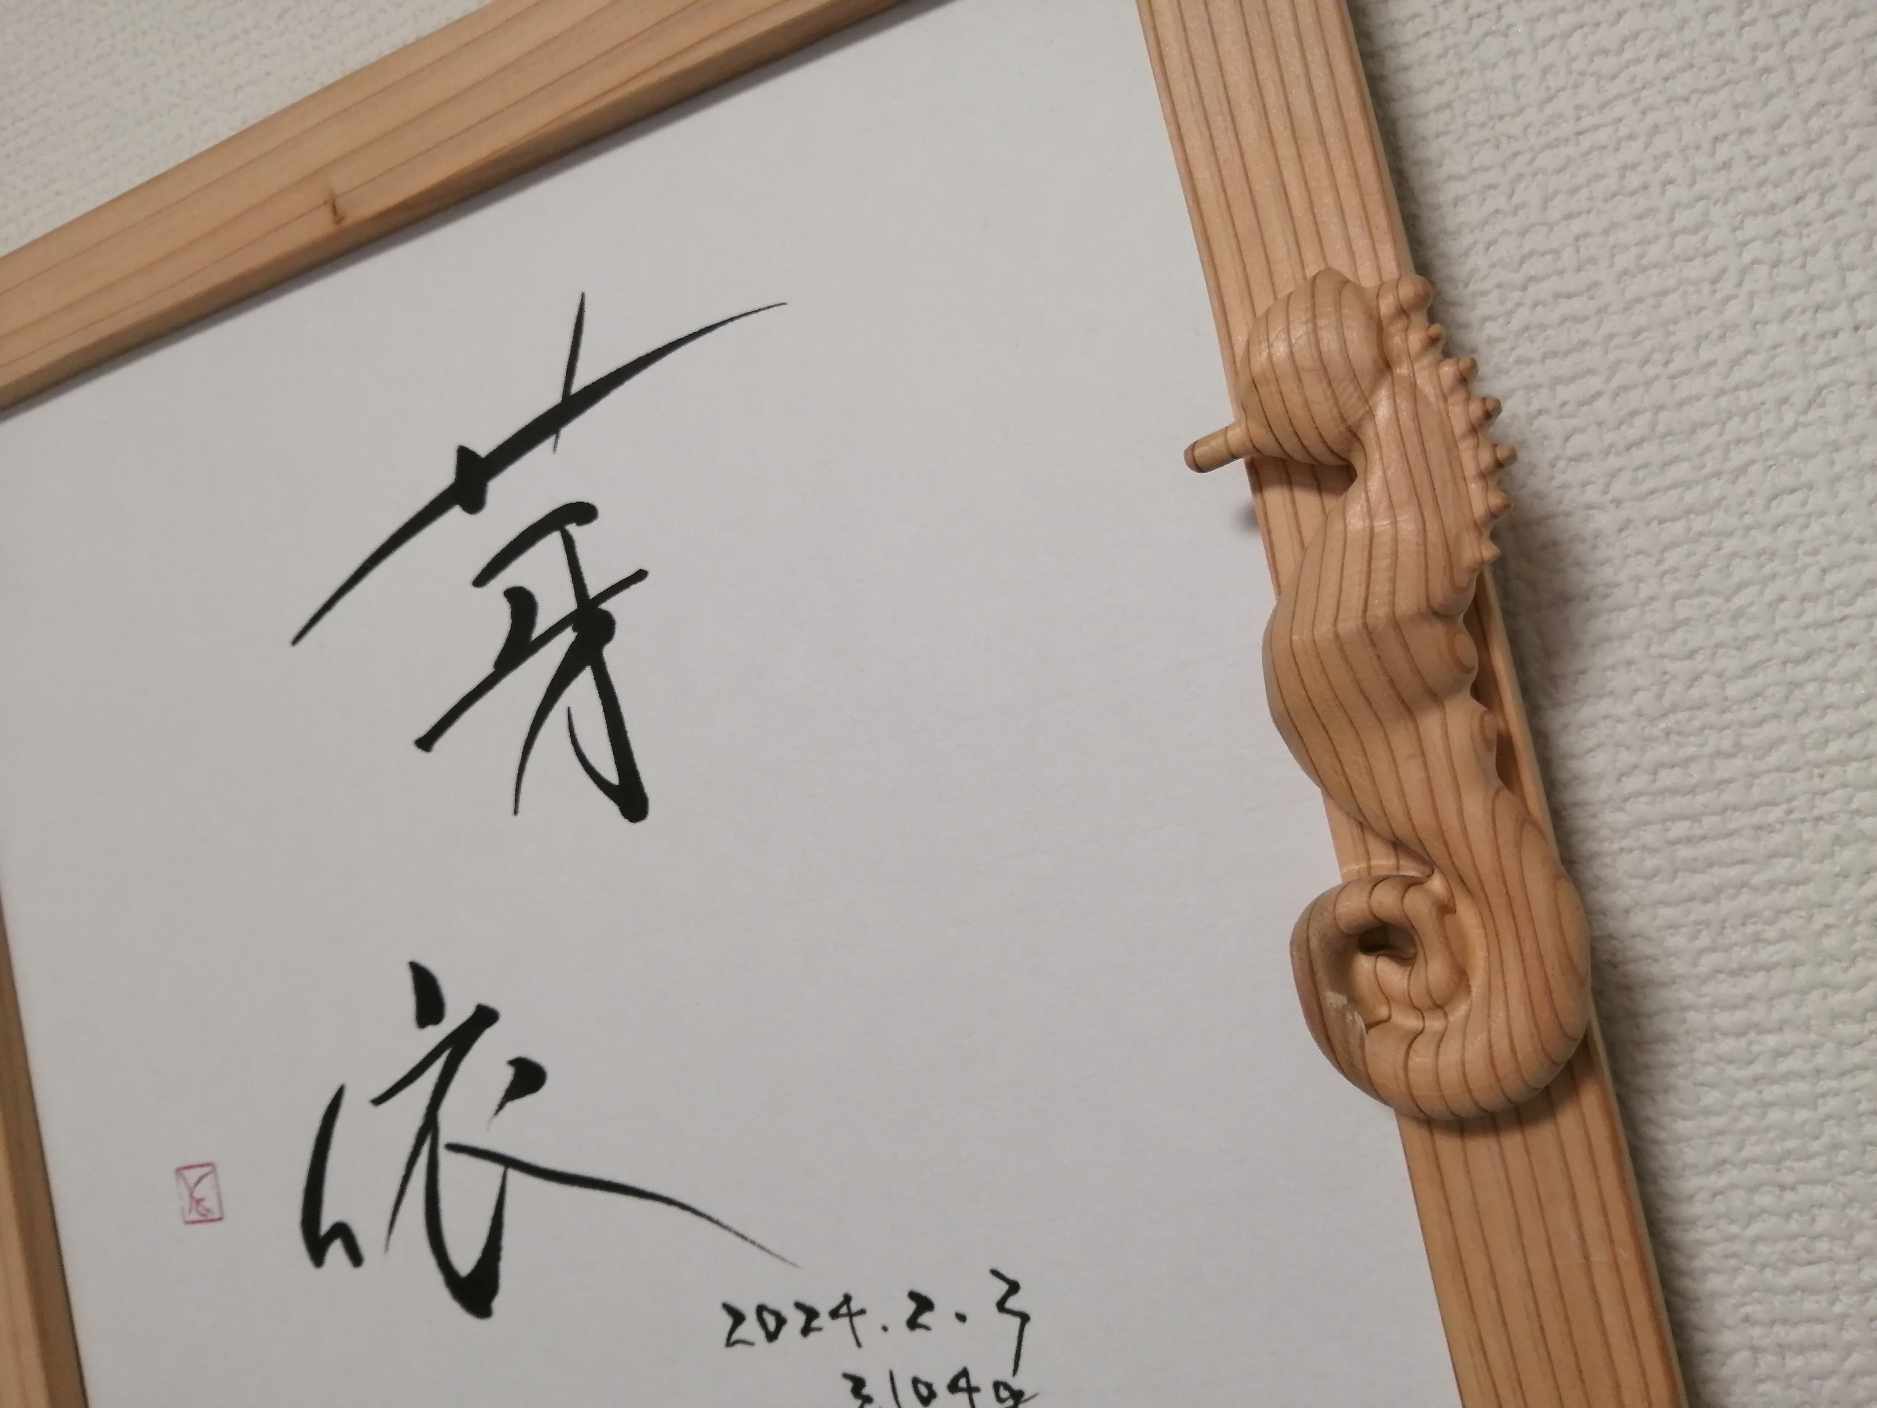 芽
依
2024.2.3
3,104g